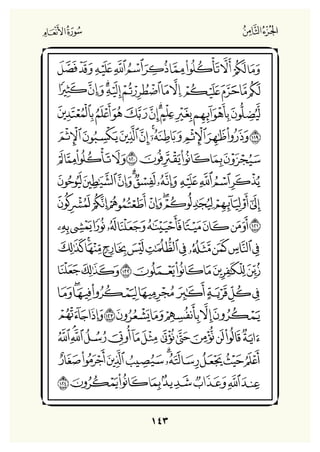 سُورَةُ الأَنْعَامِ الجُزْءُ الثَّامِنُ
وَمَا لَكُمْ أَلَّا تَأْكُلُوا۟ مِمَّا ذُكِرَ ٱسْمُ ٱللَّهِ عَلَيْهِ وَقَدْ فَصَّلَ
لَكُم مَّا حَرَّمَ عَلَيْكُمْ إِلَّا مَا ٱضْطُرِرْتُمْ إِلَيْهِ ۗ وَإِنَّ كَثِيرًا
لَّيُضِلُّونَ بِأَهْوَآئِهِم بِغَيْرِ عِلْمٍ ۗ إِنَّ رَبَّكَ هُوَ أَعْلَمُ بِٱلْمُعْتَدِينَ
١١٩ وَذَرُوا۟ ظَٰهِرَ ٱلْإِثْمِ وَبَاطِنَهُۥٓ ۚ إِنَّ ٱلَّذِينَ يَكْسِبُونَ ٱلْإِثْمَ
سَيُجْزَوْنَ بِمَا كَانُوا۟ يَقْتَرِفُونَ ١٢٠ وَلَا تَأْكُلُوا۟ مِمَّا لَمْ
يُذْكَرِ ٱسْمُ ٱللَّهِ عَلَيْهِ وَإِنَّهُۥ لَفِسْقٌ ۗ وَإِنَّ ٱلشَّيَٰطِينَ لَيُوحُونَ
إِلَىٰٓ أَوْلِيَآئِهِمْ لِيُجَٰدِلُوكُمْ ۖ وَإِنْ أَطَعْتُمُوهُمْ إِنَّكُمْ لَمُشْرِكُونَ
١٢١ أَوَمَن كَانَ مَيْتًا فَأَحْيَيْنَٰهُ وَجَعَلْنَا لَهُۥ نُورًا يَمْشِى بِهِۦ
فِى ٱلنَّاسِ كَمَن مَّثَلُهُۥ فِى ٱلظُّلُمَٰتِ لَيْسَ بِخَارِجٍ مِّنْهَا ۚ كَذَٰلِكَ
زُيِّنَ لِلْكَٰفِرِينَ مَا كَانُوا۟ يَعْمَلُونَ ١٢٢ وَكَذَٰلِكَ جَعَلْنَا
فِى كُلِّ قَرْيَةٍ أَكَٰبِرَ مُجْرِمِيهَا لِيَمْكُرُوا۟ فِيهَا ۖ وَمَا
يَمْكُرُونَ إِلَّا بِأَنفُسِهِمْ وَمَا يَشْعُرُونَ ١٢٣ وَإِذَا جَآءَتْهُمْ
ءَايَةٌ قَالُوا۟ لَن نُّؤْمِنَ حَتَّىٰ نُؤْتَىٰ مِثْلَ مَآ أُوتِىَ رُسُلُ ٱللَّهِ ۘ ٱللَّهُ
أَعْلَمُ حَيْثُ يَجْعَلُ رِسَالَتَهُۥ ۗ سَيُصِيبُ ٱلَّذِينَ أَجْرَمُوا۟ صَغَارٌ
عِندَ ٱللَّهِ وَعَذَابٌ شَدِيدٌۢ بِمَا كَانُوا۟ يَمْكُرُونَ ١٢٤
١٤٣